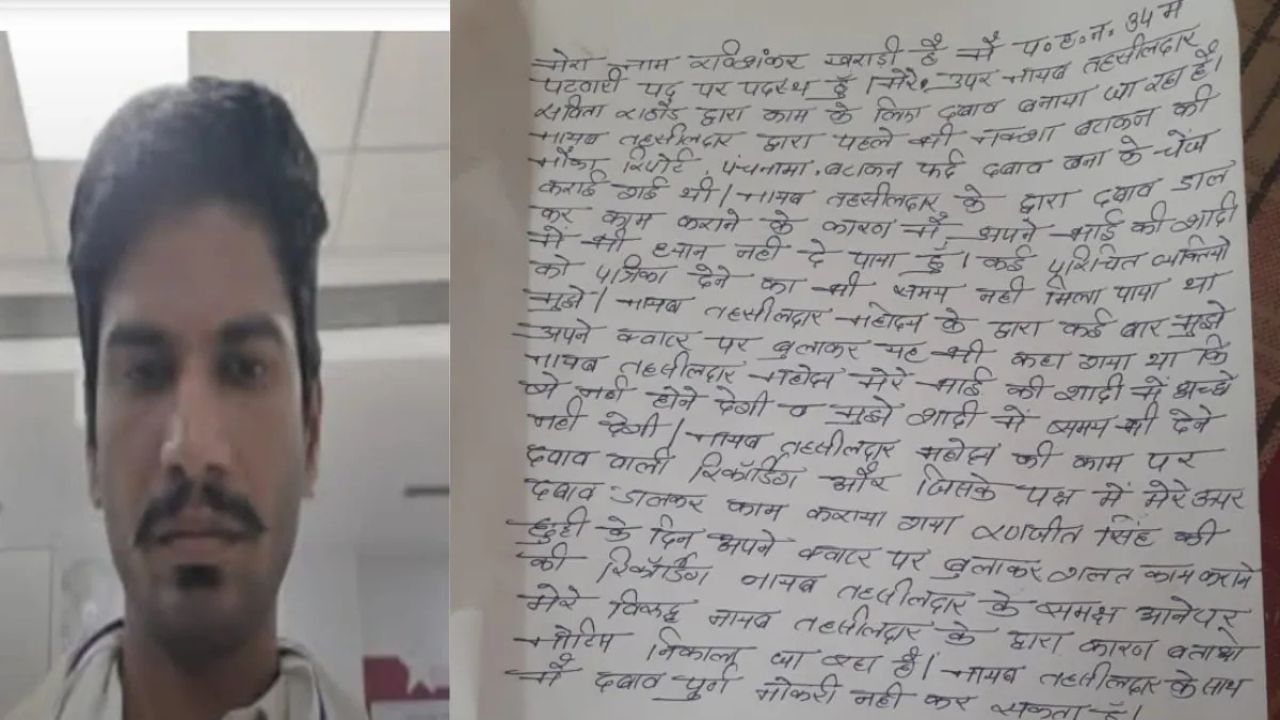 मेरा नाम रविशंकर खराडी है मैं प.ह.न. 34 में
पटवारी पद पर पदस्थ हूँ । मेरे उपर नायब तहसीलदार
सविता राठौड द्वारा काम के लिए दबाव बनाया जा रहा है।
नायब तहसीलदार द्वारा पहले भी नक्शा बटाकन की
मौका रिपोर्ट, पंचनामा, बटाकन फर्द दबाव बना के चेंज
कराई गई थी। नायब तहसीलदार के द्वारा दबाव डाल
कर काम कराने के कारण मैं अपने भाई की शादी
मे भी ध्यान नही दे पाया हूँ। कई परिचित व्यक्तियो
को पत्रिका देने का भी समय नही मिला पाया था
मुझे। नायब तहसीलदार महोदय के द्वारा कई बार मुझे
अपने क्वाटर पर बुलाकर यह भी कहा गया था कि
नायब तहसीलदार महोदय मेरे भाई की शादी में अच्छे
से नही होने देगी व मुझे शादी में समय भी देने
नही देगी। नायब तहसीलदार महोदय की काम पर
दबाव वाली रिकॉर्डिंग और जिसके पक्ष में मेरे उपर
दबाव डालकर काम कराया गया रणजीत सिंह की
छुट्टी के दिन अपने क्वाटर पर बुलाकर गलत काम कराने
की रिकॉर्डिंग नायब तहसीलदार के समक्ष आने पर
मेरे विरूद्ध नायब तहसीलदार के द्वारा कारण बताओ
नोटिस निकाला जा रहा है। नायब तहसीलदार के साथ
मैं दबाव पुर्ण नोकरी नही कर सकता हूँ।